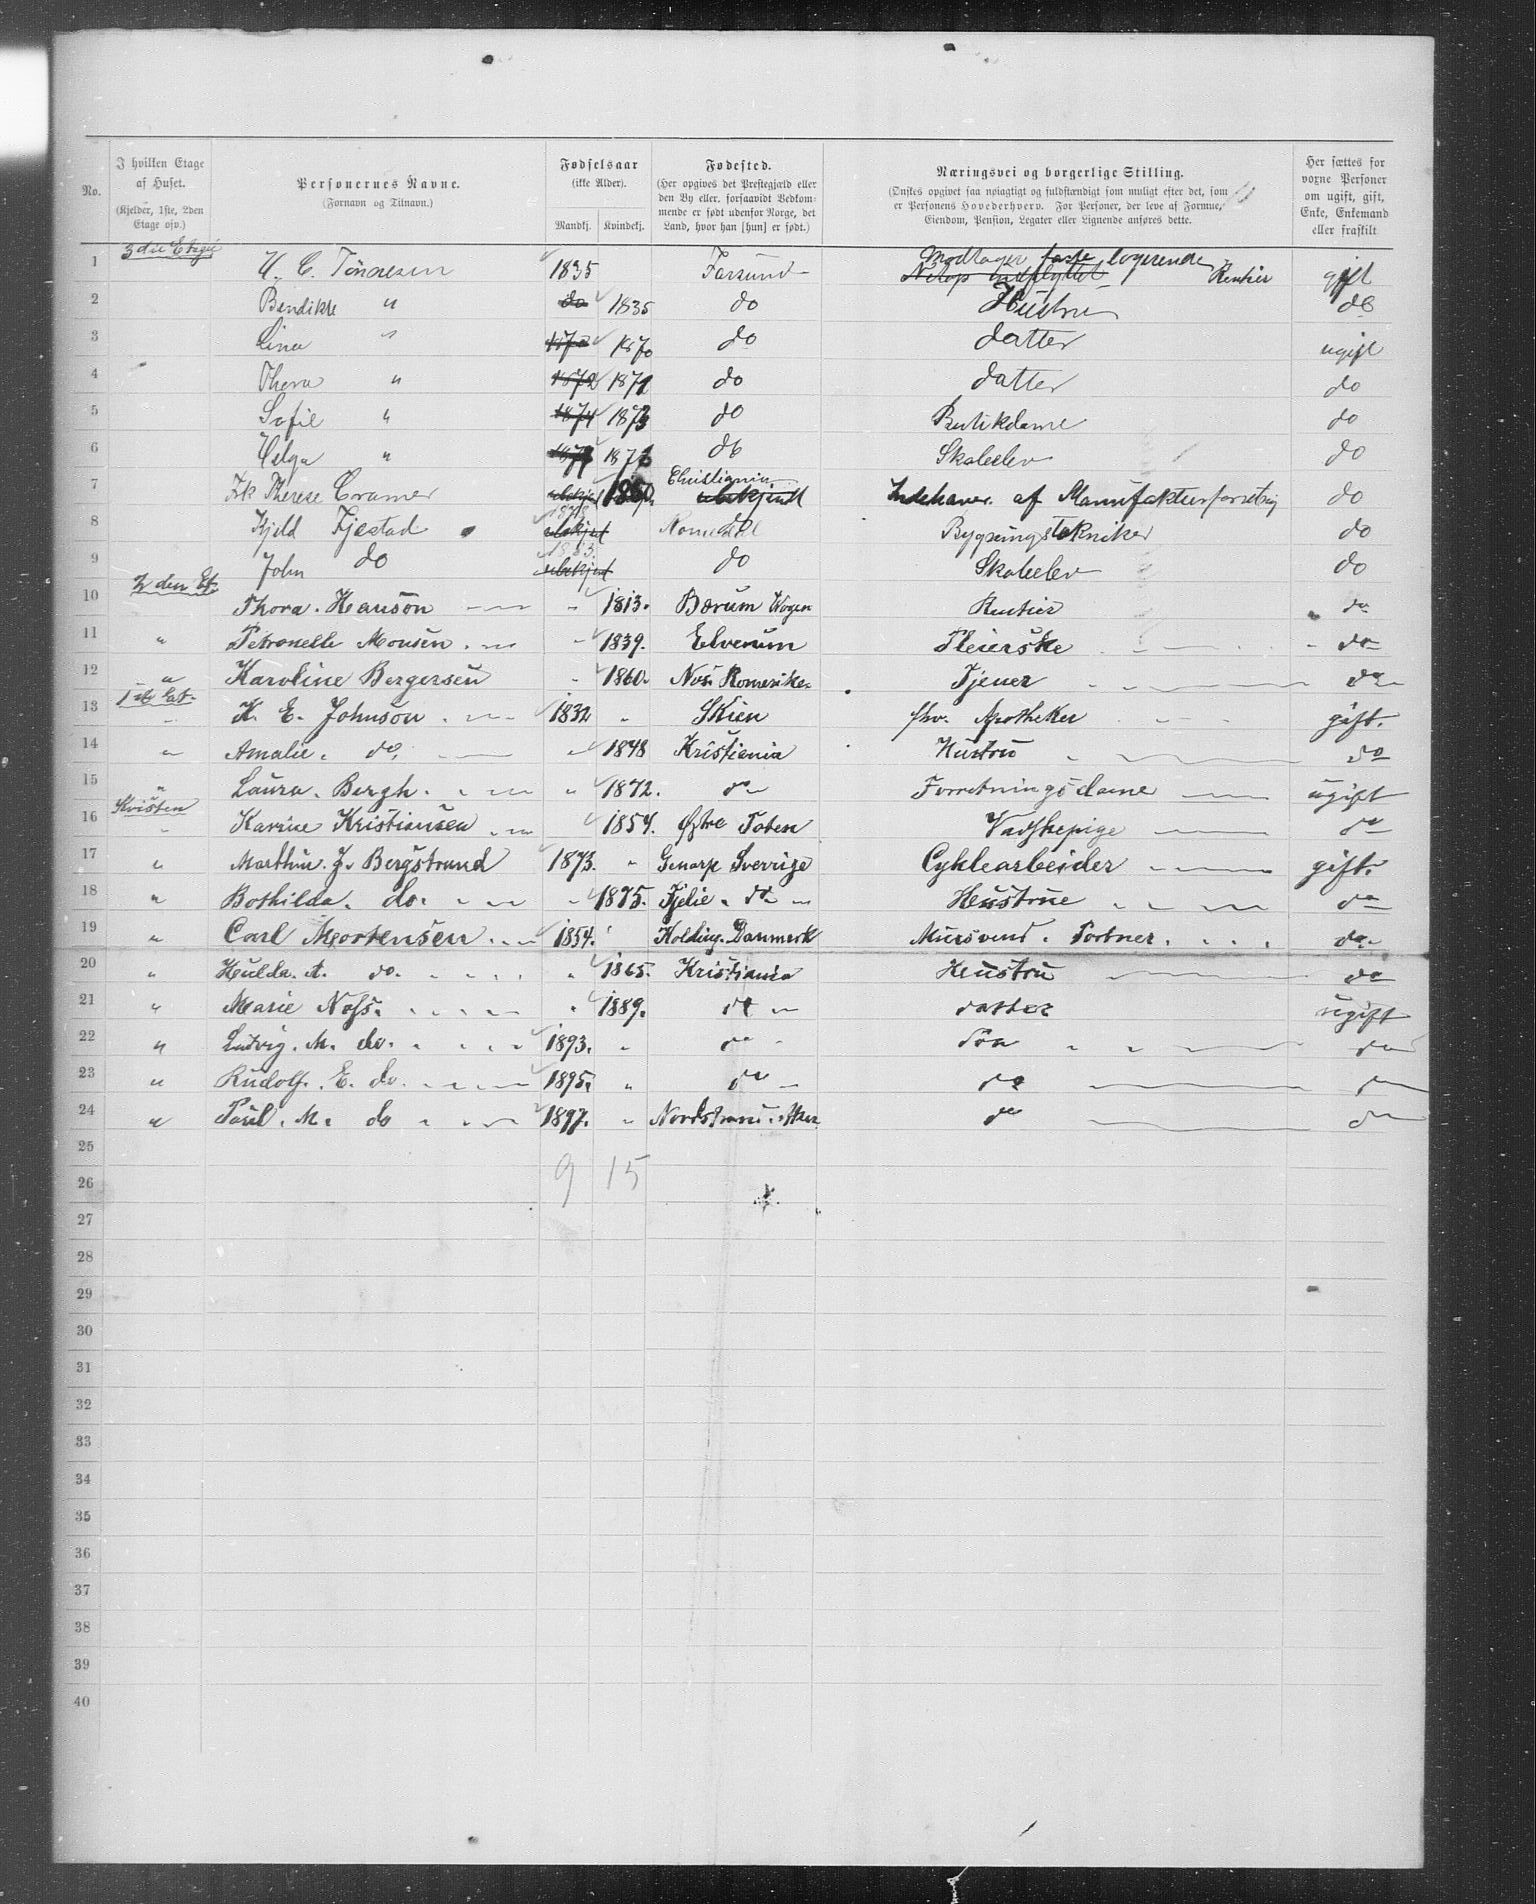 No.
I hvilken Etage af Huset. (Kjelder, 1ste, 2den Etage osv.)
Personernes Navne. (Fornavn og Tilnavn.)
Fødselsaar (ikke Alder). Mandkj. Kvindekj.
Fødested. (Her opgives det Prestegjæld eller den By eller, forsaavidt Vedkommende er født udenfor Norge, det Land, hvor han [hun] er født.)
Næringsvei og borgerlige Stilling. (Ønskes opgivet saa nøiagtigt og fuldstændigt som muligt efter det, som er Personens Hovederhverv. For Personer, der leve af Formue, Eiendom, Pension, Legater eller Lignende anføres dette.
Her sættes for voxne Personer om ugift, gift, Enke, Enkemand eller fraskilt
1 3die Etage H. C. Tönnesen 1835 Farsund Modtager faste logerende Netop indflyttet Rentier gift
2 Bendikte " do 1835 do Hustru do
3 Lina " 1870 1870 do datter ugift
4 Thora " 1872 1871 do datter do
5 Sofie " 1874 1873 do Butikdame do
6 Helga " 1877 do Skoleelev do
7 Frk Therese Cramer ubekjent 1860 Christiania ubekjendt Indehaver af Manufakturforretnig do
8 Kjeld Fjestad 1878 ubekjent Romedal do Bygningstekniker do
9 John do 1883. ubekjent do Skoleelev do
10 2den Et. Thora. Hanson " 1813. Bærum Rentier do
11 " Petronelle Monsen " 1839. Elverum Pleierske do
12 " Karoline Bergersen " 1860. Nes Romerike. Tjener do
13 1ste Eat. " K. E. Johnson 1832 " Skien fhv. Apotheker gift.
14 " Amalie. do. " 1848 Kristiania Hustru do
15 " Laura. Bergh. " 1872. do Forretningsdame ugift
16 Kvisten " Karine Kristiansen 1854. Østre Toten Vadskepige do
17 " Marthin. J. Bergstrand 1873. " Genarp Sverrige Cyklearbeider gift.
18 " Bothilda. do. " 1875. Fjelie. do Hustrue do
19 " Carl Mortensen 1854. Kolding. Danmark Mursvend. Portner. do.
20 " Hulda. A. do. " 1865. Kristiania Hustru do
21 " Marie Nass. " 1889. do datter ugift
22 " Ludvig. M. do. 1893. " do Søn do
23 " Rudolf. E. do. 1895. " do do do
24 " Paul. M. do 1897. " Nordstrand. Aker do do
25
26 9 15
27
28
29
30
31
32
33
34
35
36
37
38
39
40